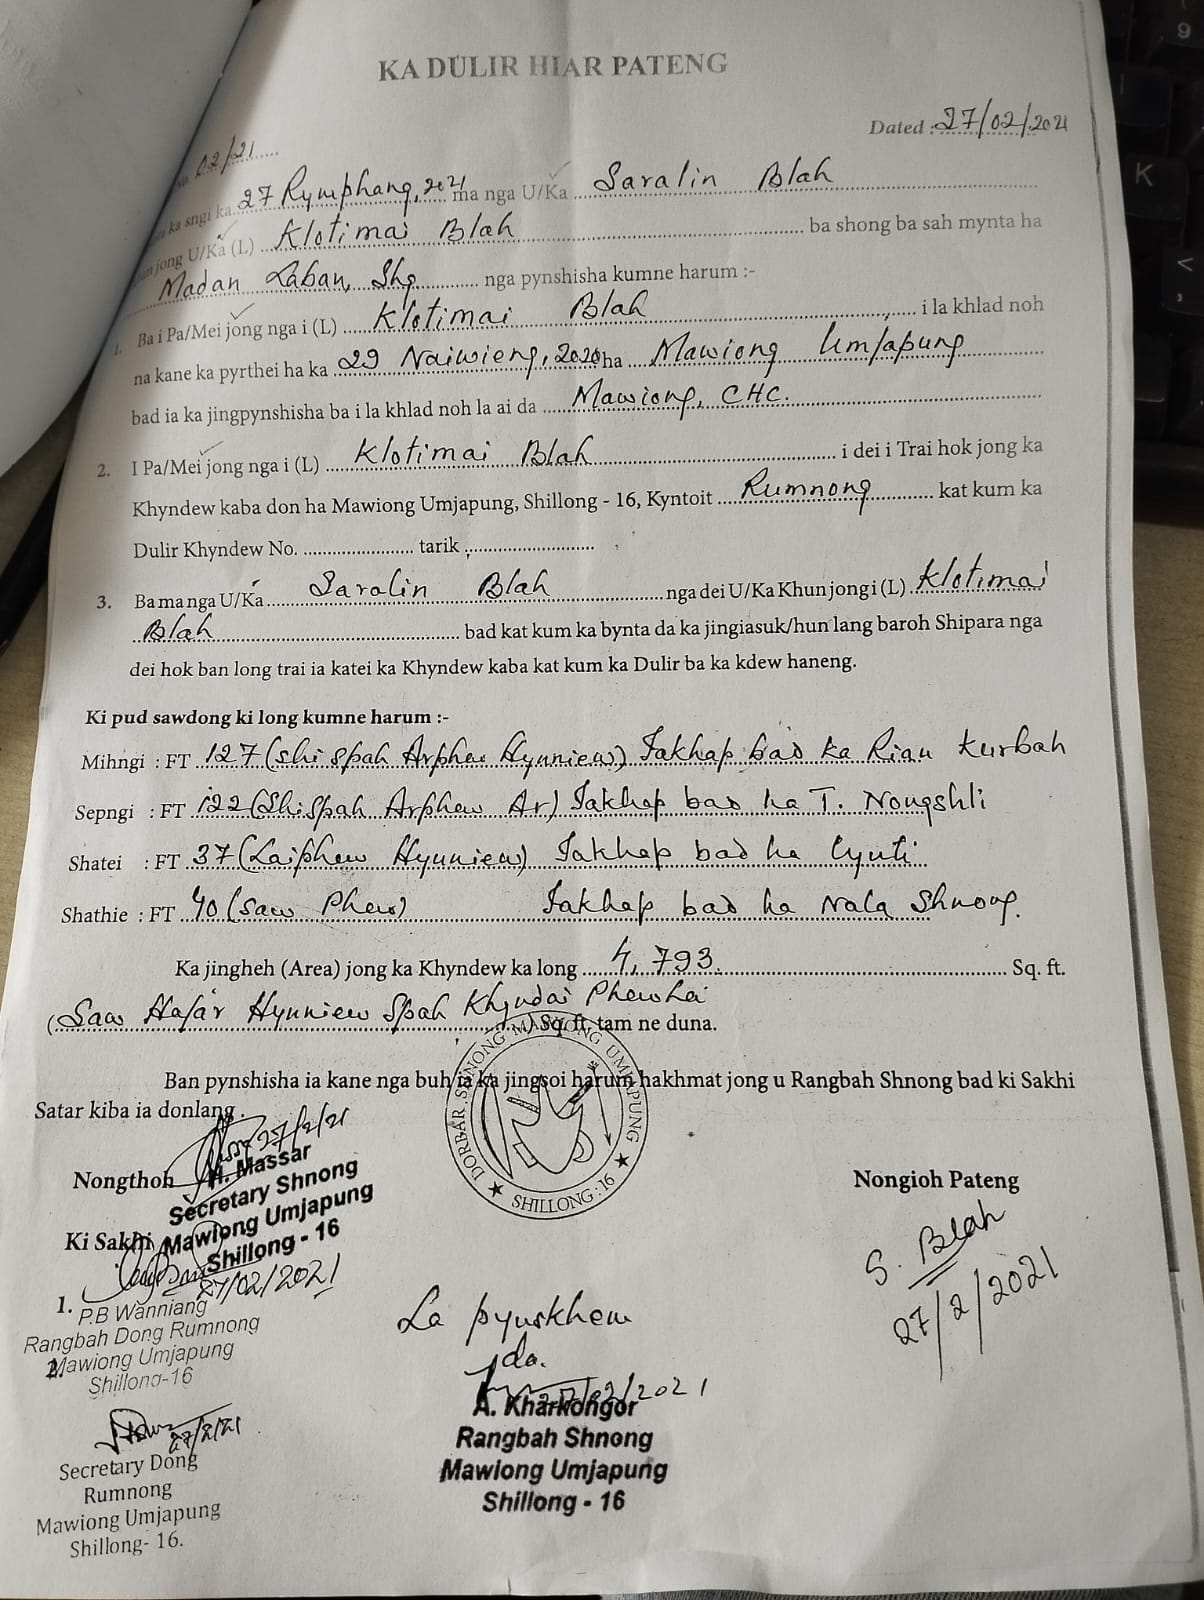 KA DULIR HIAR PATENG
Dated : 27/02/2021
No. 02/21
ka sngi ka 27 Rymphang, 2021 ma nga U/Ka Saralin Blah
jong U/Ka (L) Klotimai Blah ba shong ba sah mynta ha
Madan Laban, Shg nga pynshisha kumne harum :-
1. Ba i Pa/Mei jong nga i (L) Klotimai Blah i la khlad noh
na kane ka pyrthei ha ka 29 Naiwieng, 2020 ha Mawiong Umjapung
bad ia ka jingpynshisha ba i la khlad noh la ai da Mawiong, CHC.
2. I Pa/Mei jong nga i (L) Klotimai Blah i dei i Trai hok jong ka
Khyndew kaba don ha Mawiong Umjapung, Shillong - 16, Kyntoit Rumnong kat kum ka
Dulir Khyndew No. ...................... tarik ..........................
3. Ba ma nga U/Ka Saralin Blah nga dei U/Ka Khun jong i (L) Klotimai
Blah bad kat kum ka bynta da ka jingiasuk/hun lang baroh Shipara nga
dei hok ban long trai ia katei ka Khyndew kaba kat kum ka Dulir ba ka kdew haneng.
Ki pud sawdong ki long kumne harum :-
Mihngi : FT 127 (Shi Spah Arphew Hynniew) Iakhap bad ka Rian Kurbah
Sepngi : FT 122 (Shi Spah Arphew Ar) Iakhap bad ka T. Nongshli
Shatei : FT 37 (Laiphew Hynniew) Iakhap bad ka Lynti
Shathie : FT 40 (Saw Phew) Iakhap bad ka Nala Shnong.
Ka jingheh (Area) jong ka Khyndew ka long 4,793 Sq. ft.
(Saw Hajar Hynniew Spah Khyndai Phewlai) Sq. ft. tam ne duna.
Ban pynshisha ia kane nga buh ia ka jingsoi harum hakhmat jong u Rangbah Shnong bad ki Sakhi
Satar kiba ia donlang.
DORBAR SHNONG MAWIONG UMJAPUNG
★ SHILLONG : 16 ★
27/2/21
Nongthoh
H. Massar
Secretary Shnong
Mawiong Umjapung
Shillong - 16
Nongioh Pateng
S. Blah
27/2/2021
Ki Sakhi
27/02/2021
1. P.B Wanniang
Rangbah Dong Rumnong
2. Mawiong Umjapung
Shillong-16
La pynskhem
da.
27/02/2021
A. Kharkongor
Rangbah Shnong
Mawiong Umjapung
Shillong - 16
27/2/21
Secretary Dong
Rumnong
Mawiong Umjapung
Shillong- 16.